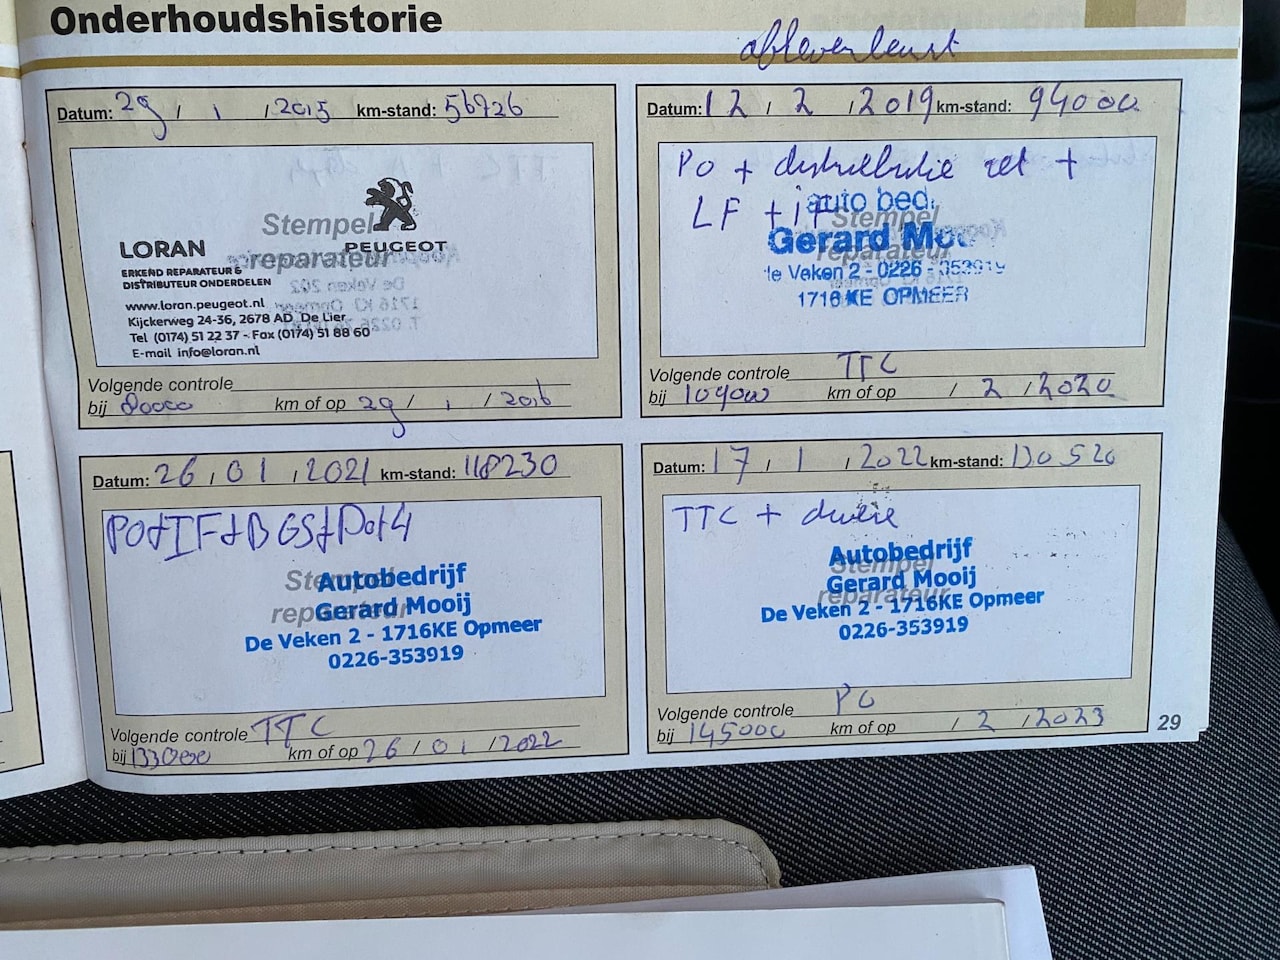 Onderhoudshistorie
Datum: 29 / 1 / 2015 km-stand: 56726
Stempel
reparateur
PEUGEOT
LORAN
ERKEND REPARATEUR &
DISTRIBUTEUR ONDERDELEN
www.loran.peugeot.nl
Kijckerweg 24-36, 2678 AD De Lier
Tel (0174) 51 22 37 - Fax (0174) 51 88 60
E-mail info@loran.nl
Volgende controle
bij 80000 km of op 29 / 1 / 2016
Datum: 12 / 2 / 2019 km-stand: 94000
PO + distributie set +
LF + IF
auto bed.
Stempel
Gerard Moo
reparateur
de Veken 2 - 0226 - 353919
1716 KE OPMEER
Volgende controle TTC
bij 109000 km of op / 2 / 2020
Datum: 26 / 01 / 2021 km-stand: 118230
PO+IF+BGS+Dot4
Stempel
reparateur
Autobedrijf
Gerard Mooij
De Veken 2 - 1716KE Opmeer
0226-353919
Volgende controle TTC
bij 133000 km of op 26 / 01 / 2022
Datum: 17 / 1 / 2022 km-stand: 130526
TTC +
Autobedrijf
Stempel
Gerard Mooij
reparateur
De Veken 2 - 1716KE Opmeer
0226-353919
Volgende controle PO
bij 145000 km of op / 2 / 2023
29